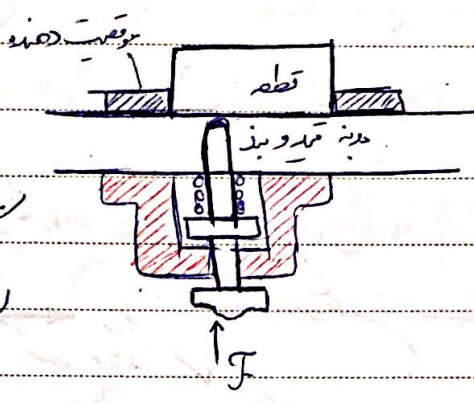 موقعیت دهنده
قطعه
بدنه قید و بند
F